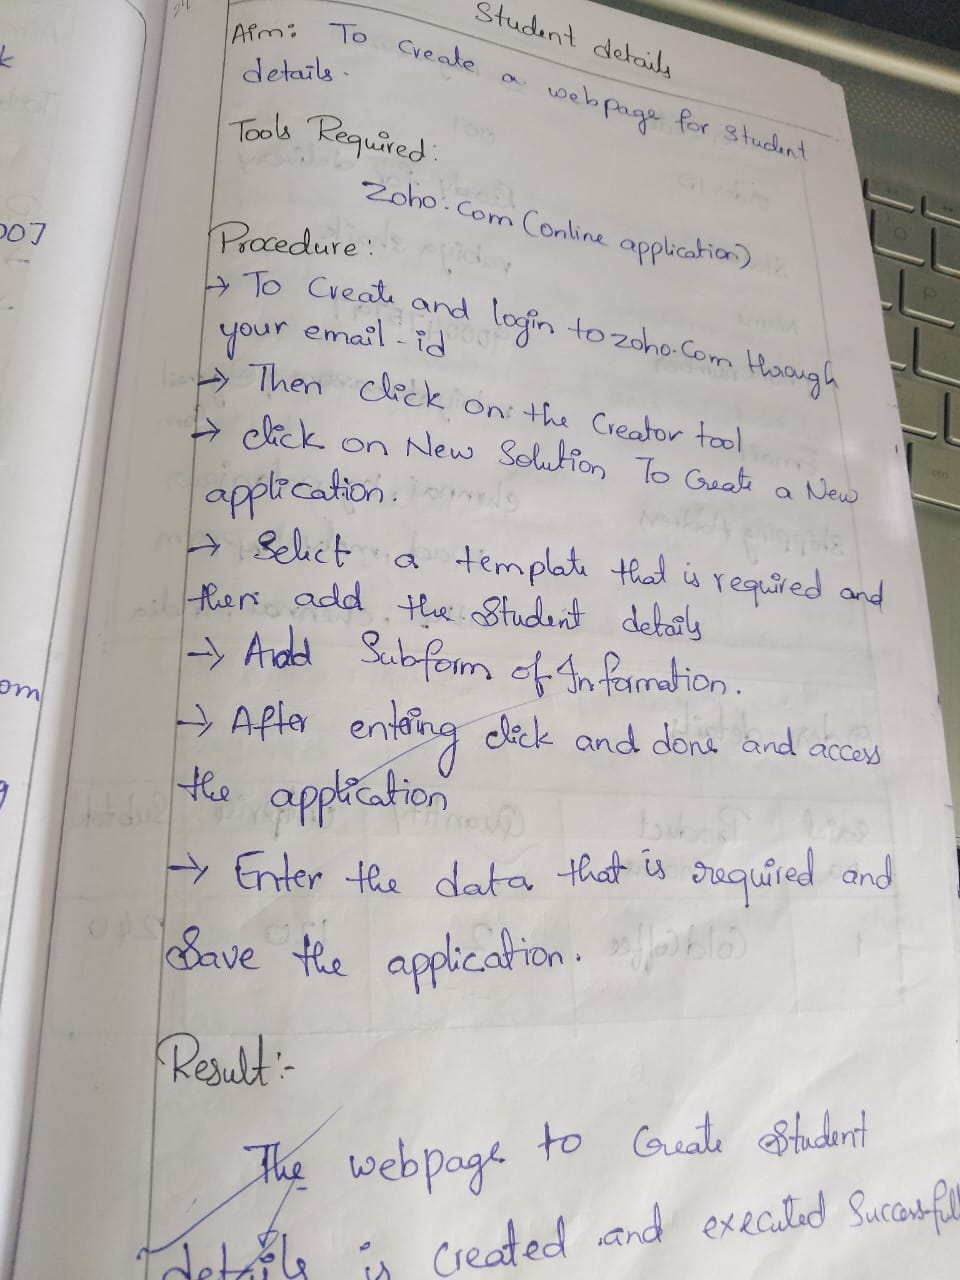 Student details
Aim: To Create a webpage for Student
details.
Tools Required:
Zoho.com (online application)
Procedure:
→ To Create and login to zoho.Com through
your email-id
→ Then click on the Creator tool
→ click on New Solution To Create a New
application.
→ Select a template that is required and
then add the Student details
→ Add Subform of Information.
→ After entering click and done and access
the application
→ Enter the data that is required and
Save the application.
Result:-
The webpage to Create Student
details is Created and executed Successful